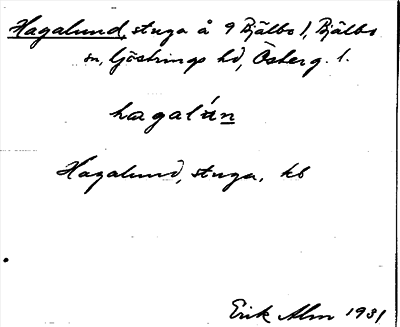 Hagalund, stuga å 9 Bjälbo 1, Bjälbo
sn, Göstrings hd, Österg. l.
hagalún
Hagalund, stuga, kb
Erik Alm 1931